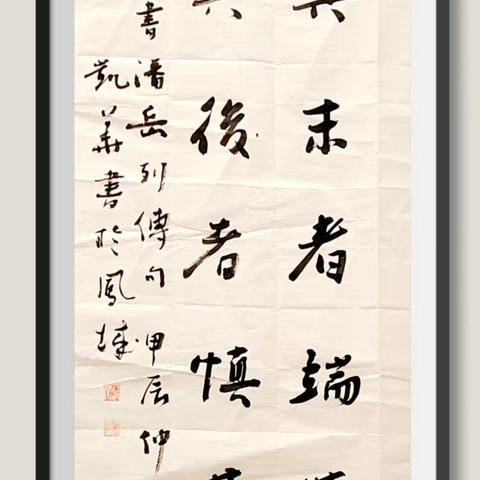 末者端
後者慎
書潘岳列傳句 甲辰仲
凱華書於鳳城